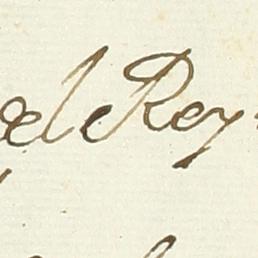 del Rey